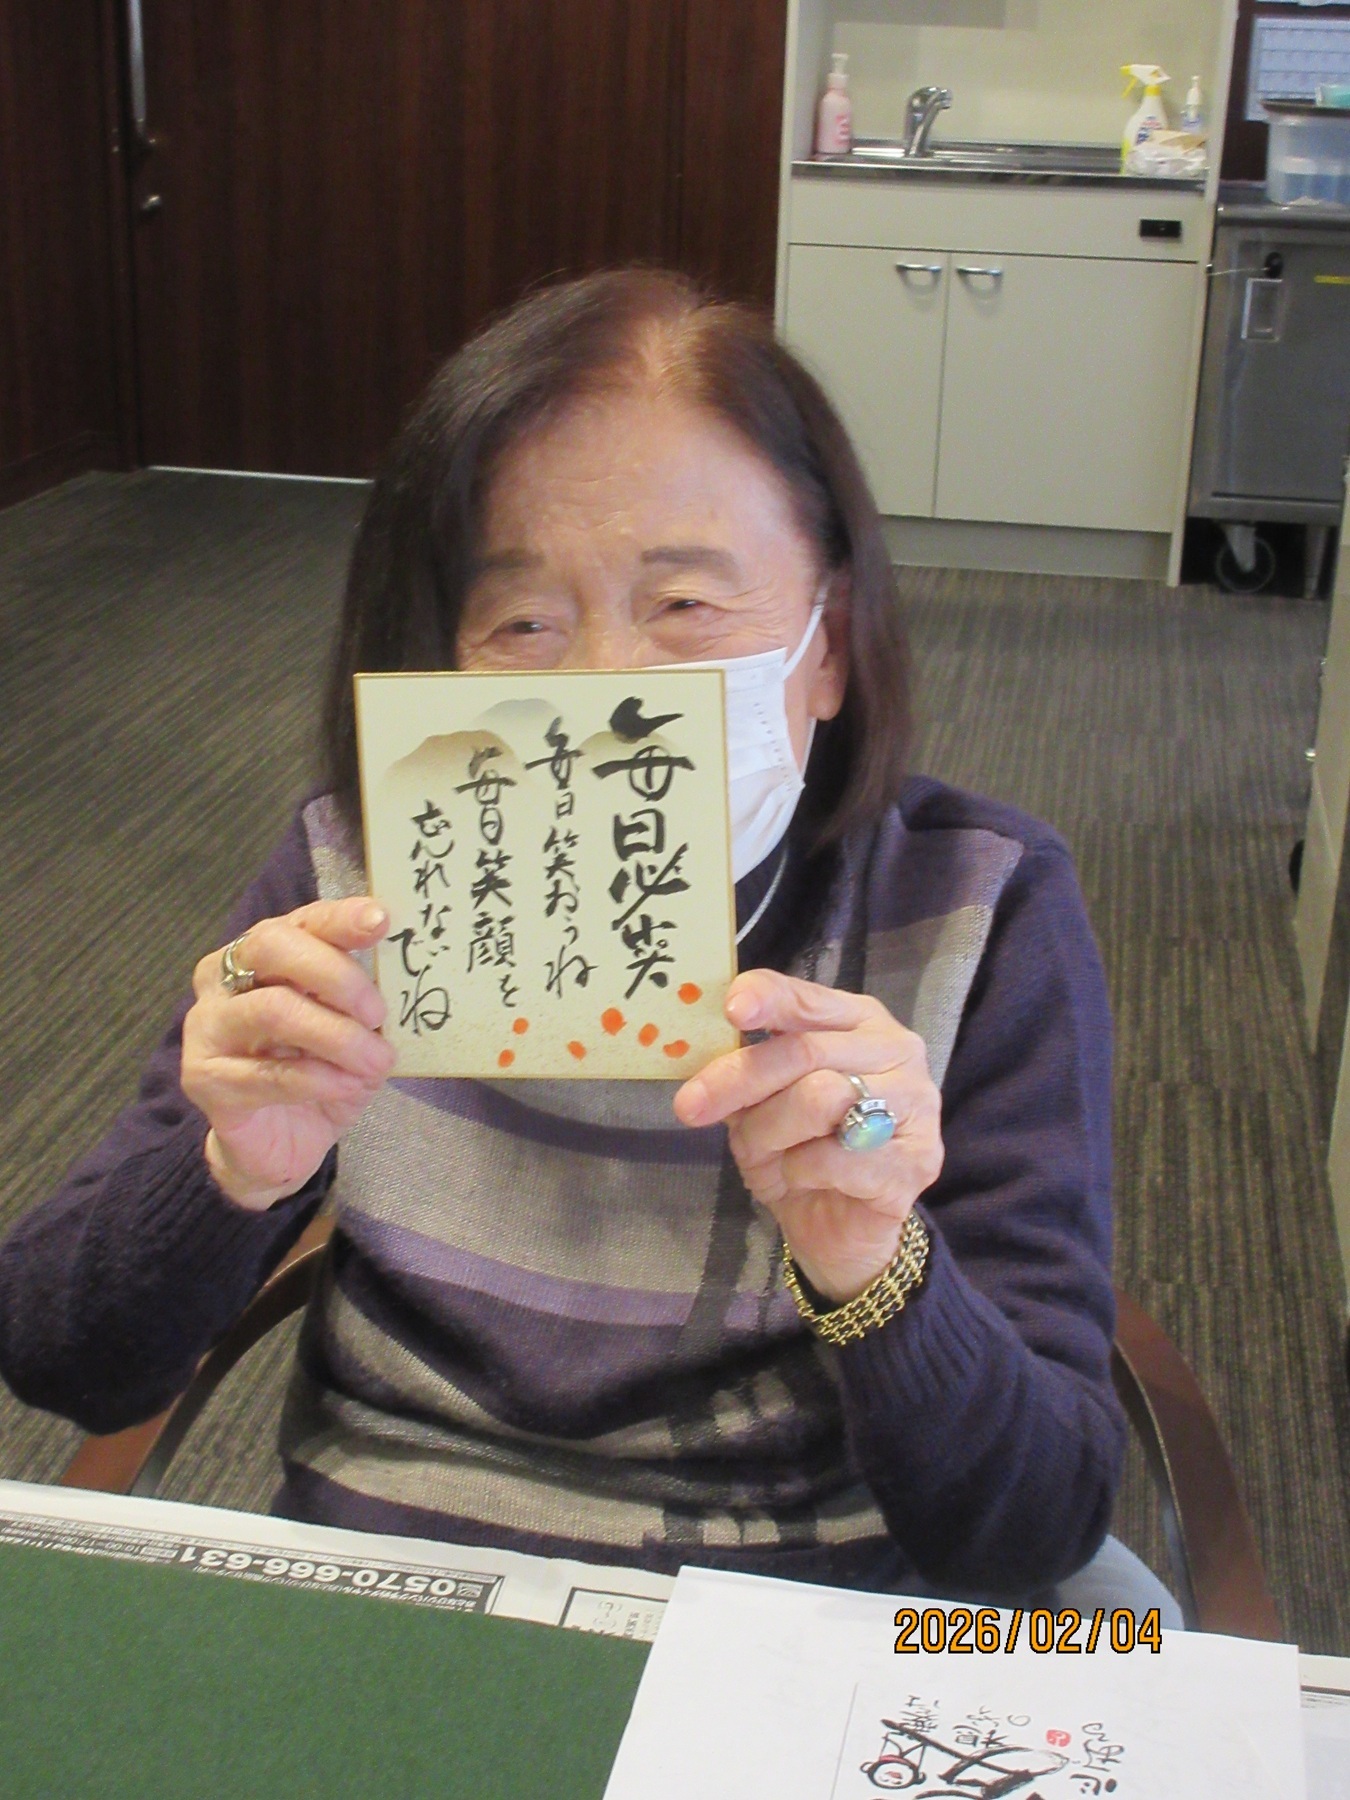 毎日必笑
毎日笑おうね
毎日笑顔を
忘れない
でね
0570-666-631
2026/02/04